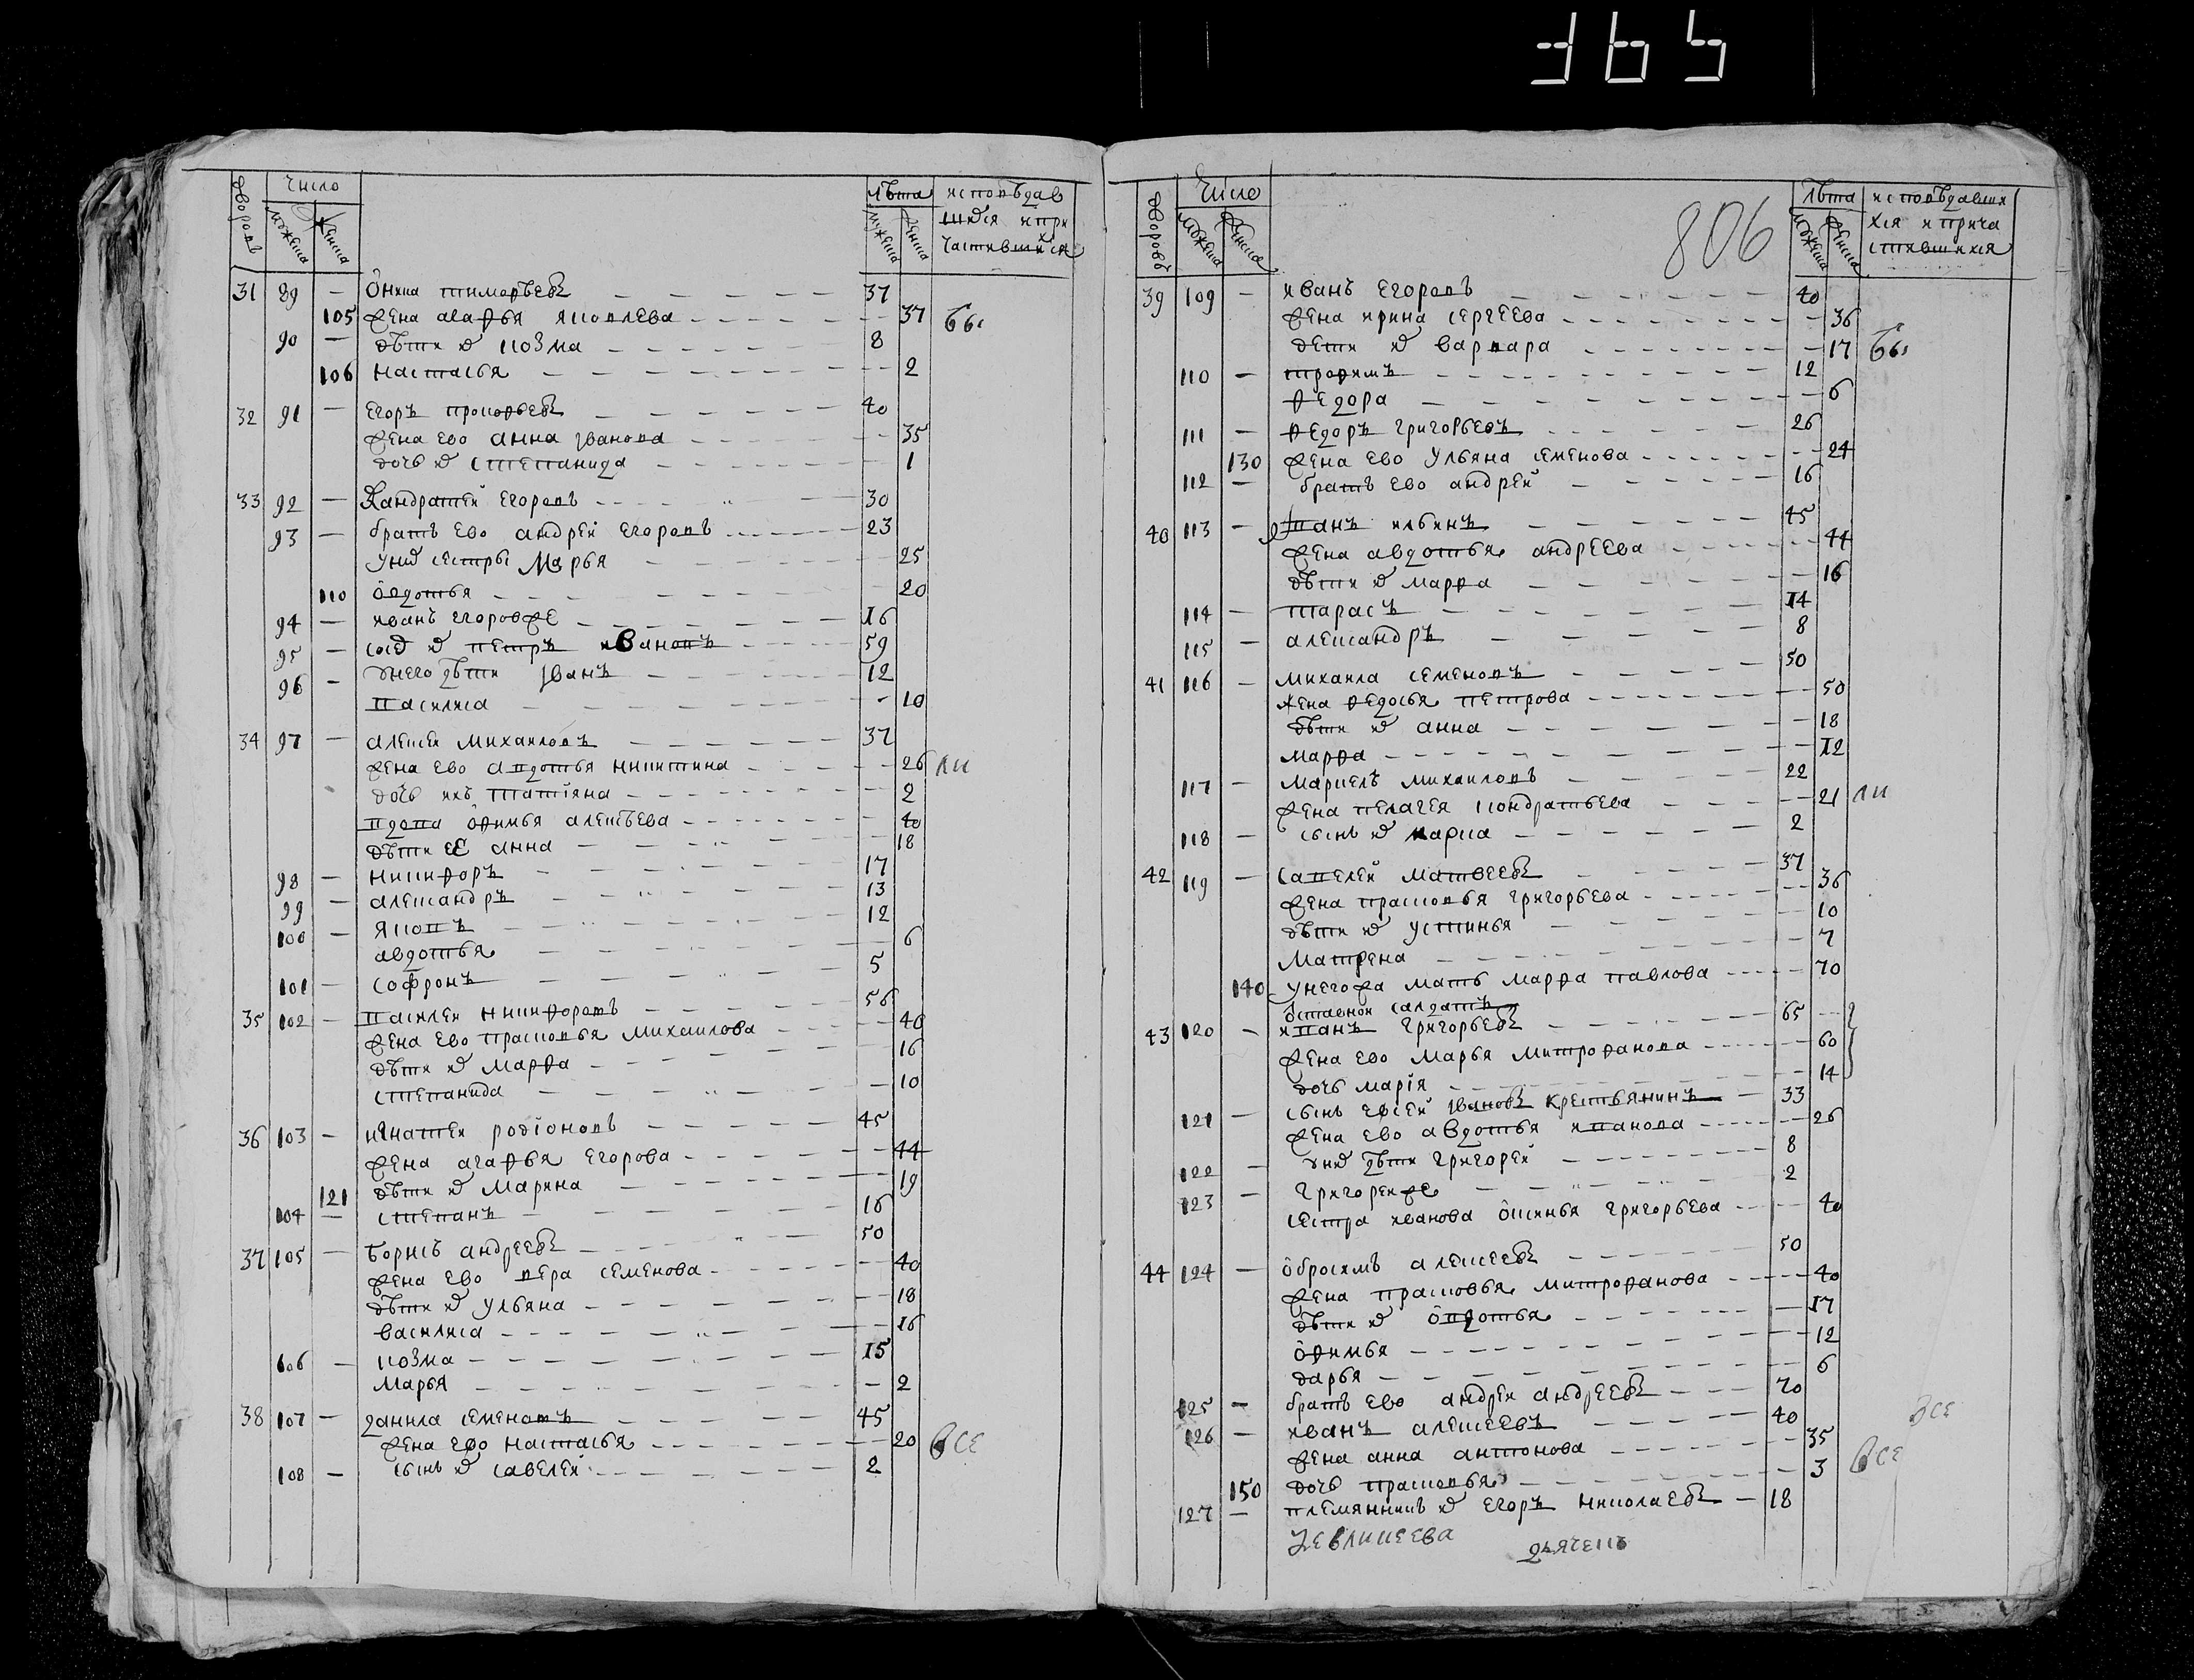 365
Число
Дворовъ
мужеска
женска
Лѣта
мужеска
женска
исповѣдав
шихся и при
частившихся
31 89 — Оника тимофѣевъ 37
105 жена агафья яковлева 37 бы
90 — дѣти их козма 8
106 настасья 2
32 91 — Егоръ прокофьевъ 40
жена ево анна Iванова 35
дочь их степанида 1
33 92 — Кандратей Егоровъ 30
93 — братъ Ево андрей Егоровъ 23
у них сестры Марья 25
110 овдотья 20
94 — иванъ Егоровже 16
95 — сосед их петръ иванопъ 59
96 — у него дѣти Iванъ 12
василиса 10
34 97 — алексеи михаиловъ 37
жена ево авдотья никитина 26 ли
дочь ихъ татiяна 2
вдова офимья алексѣева 40
дѣти ЕЕ анна 18
98 — никифоръ 17
99 — александръ 13
100 — яковъ 12
авдотья 6
101 — софронъ 5
35 102 — василеи никифоровъ 56
жена ево прасковья михаилова 46
дѣти их марфа 16
степанида 10
36 103 — игнатеи родiоновъ 45
жена агафья Егорова 44
121 дѣти их марина 19
104 — степанъ 16
37 105 — борисъ андреевъ 50
жена ево вера семенова 40
дѣти их ульяна 18
василиса 16
106 — козма 15
марья 2
38 107 — данила семеновъ 45
жена ево настасья 20 все
108 — сынъ их савелеи 2
806
Число
Дворовъ
мужеска
женска
Лѣта
мужеска
женска
исповѣдавши
хся и прича
стившихся
39 109 — иванъ Егоровъ 40
жена ирина сергеева 36
дети их варвара 17 бы
110 — трофимъ 12
федора 6
111 — федоръ григорьевъ 26
130 жена ево ульяна семенова 24
112 — братъ ево андрей 16
40 113 — Iванъ ильинъ 45
жена авдотья андреева 44
дѣти их марфа 16
114 — тарасъ 14
115 — александръ 8
41 116 — михаила семеновъ 50
жена федосья петрова 50
дѣти их анна 18
марфа 12
117 — маркелъ михаиловъ 22
жена пелагея кондратьева 21 ли
118 — сынъ их карпа 2
42 119 — савелей матвеевъ 37
жена прасковья григорьева 36
дѣти их устинья 10
матрена 7
140 у негожа мать марфа павлова 70
оставной салдатъ
43 120 — иванъ григорьевъ 65
жена ево марья митрофанова 60
дочь марiя 14
121 — сынъ евсеи Iвановъ крестьянинъ 33
жена ево авдотья иванова 26
122 — у них дѣти григореи 8
123 — григореиже 2
сестра иванова оксинья григорьева 40
44 124 — обросимъ алексеевъ 50
жена прасковья митрофанова 40
дѣти их овдотья 17
офимья 12
дарья 6
125 — братъ ево андреи андреевъ 70
126 — иванъ алексеевъ 40 все
жена анна антонова 35
150 дочь прасковья 3 все
127 — племянникъ их Егоръ николаевъ 18